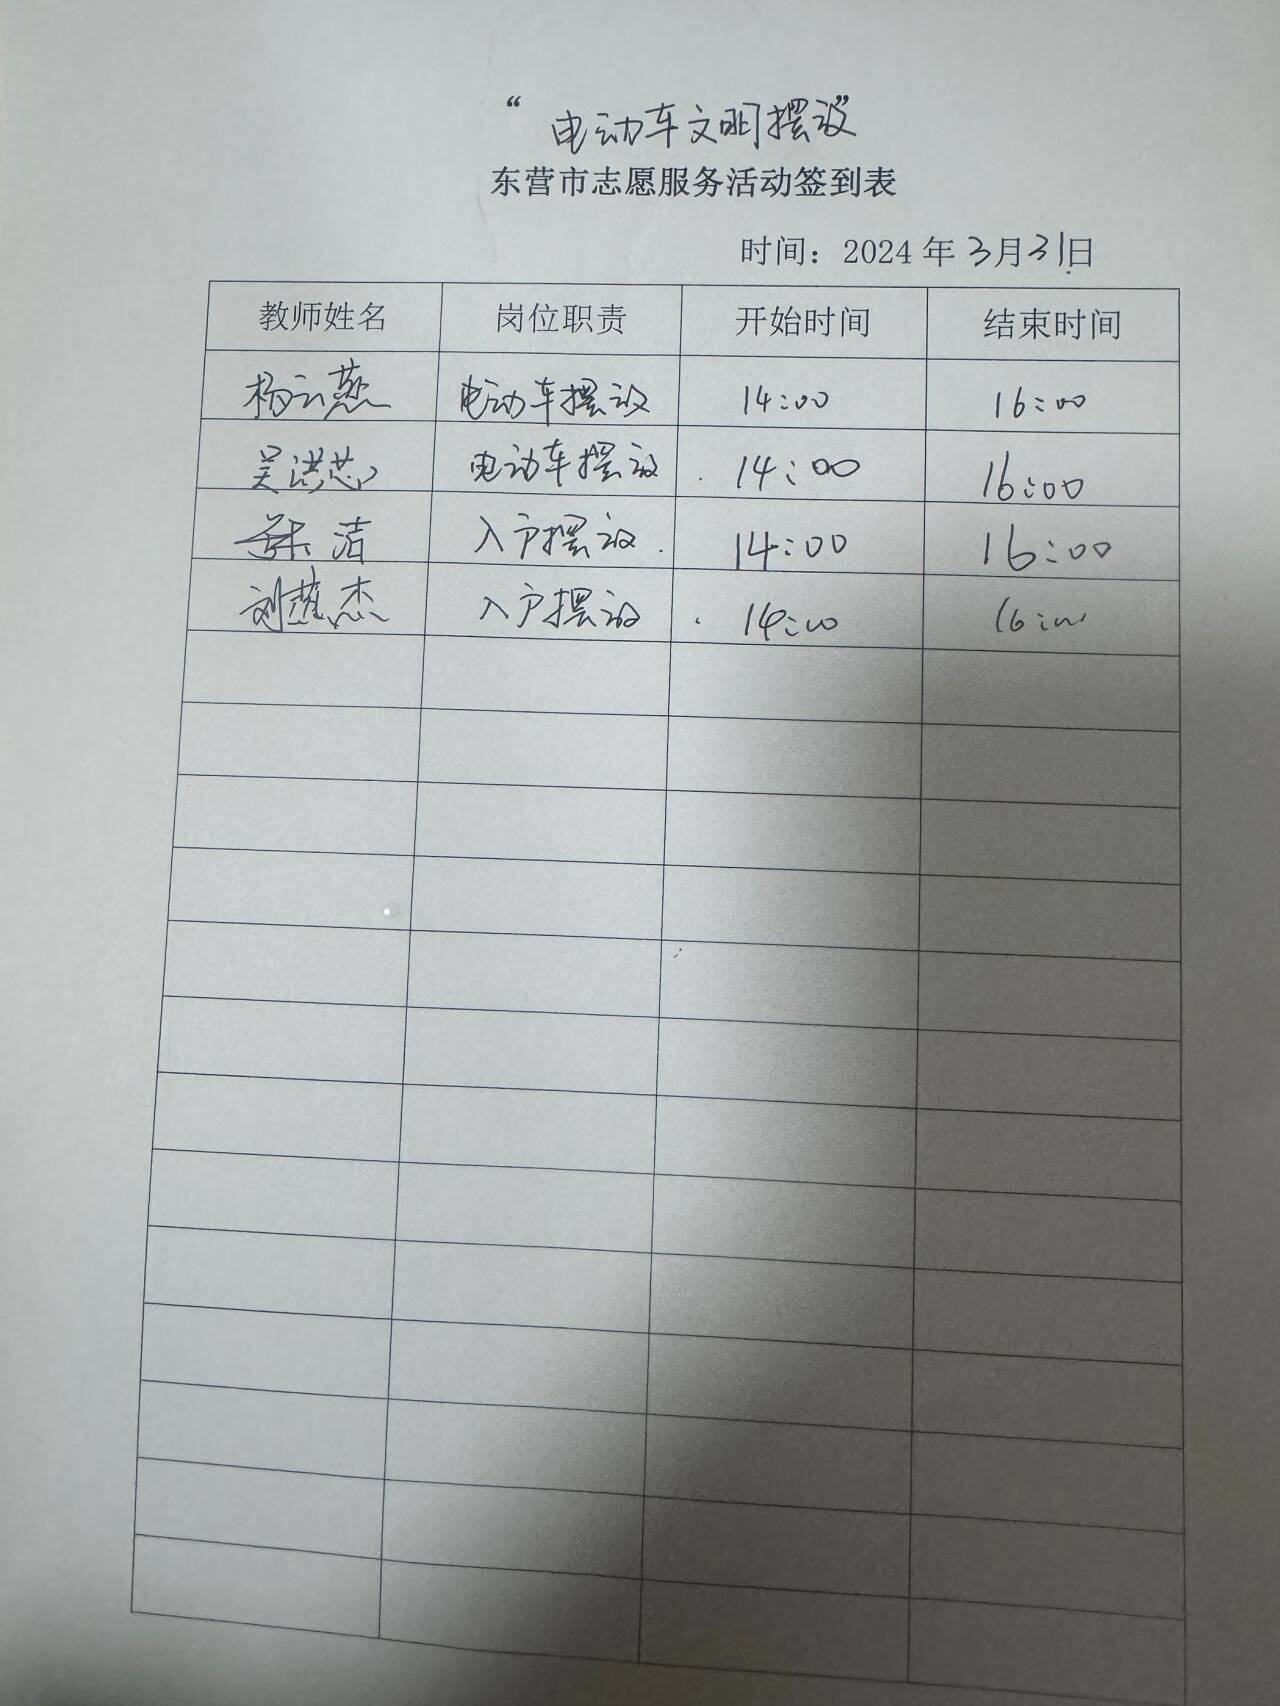 “电动车文明摆放”
东营市志愿服务活动签到表
时间：2024年3月31日
教师姓名 岗位职责 开始时间 结束时间
杨云燕 电动车摆放 14:00 16:00
吴洪芯 电动车摆放 14:00 16:00
洁 入户摆放 14:00 16:00
刘 杰 入户摆放 14:00 16:00